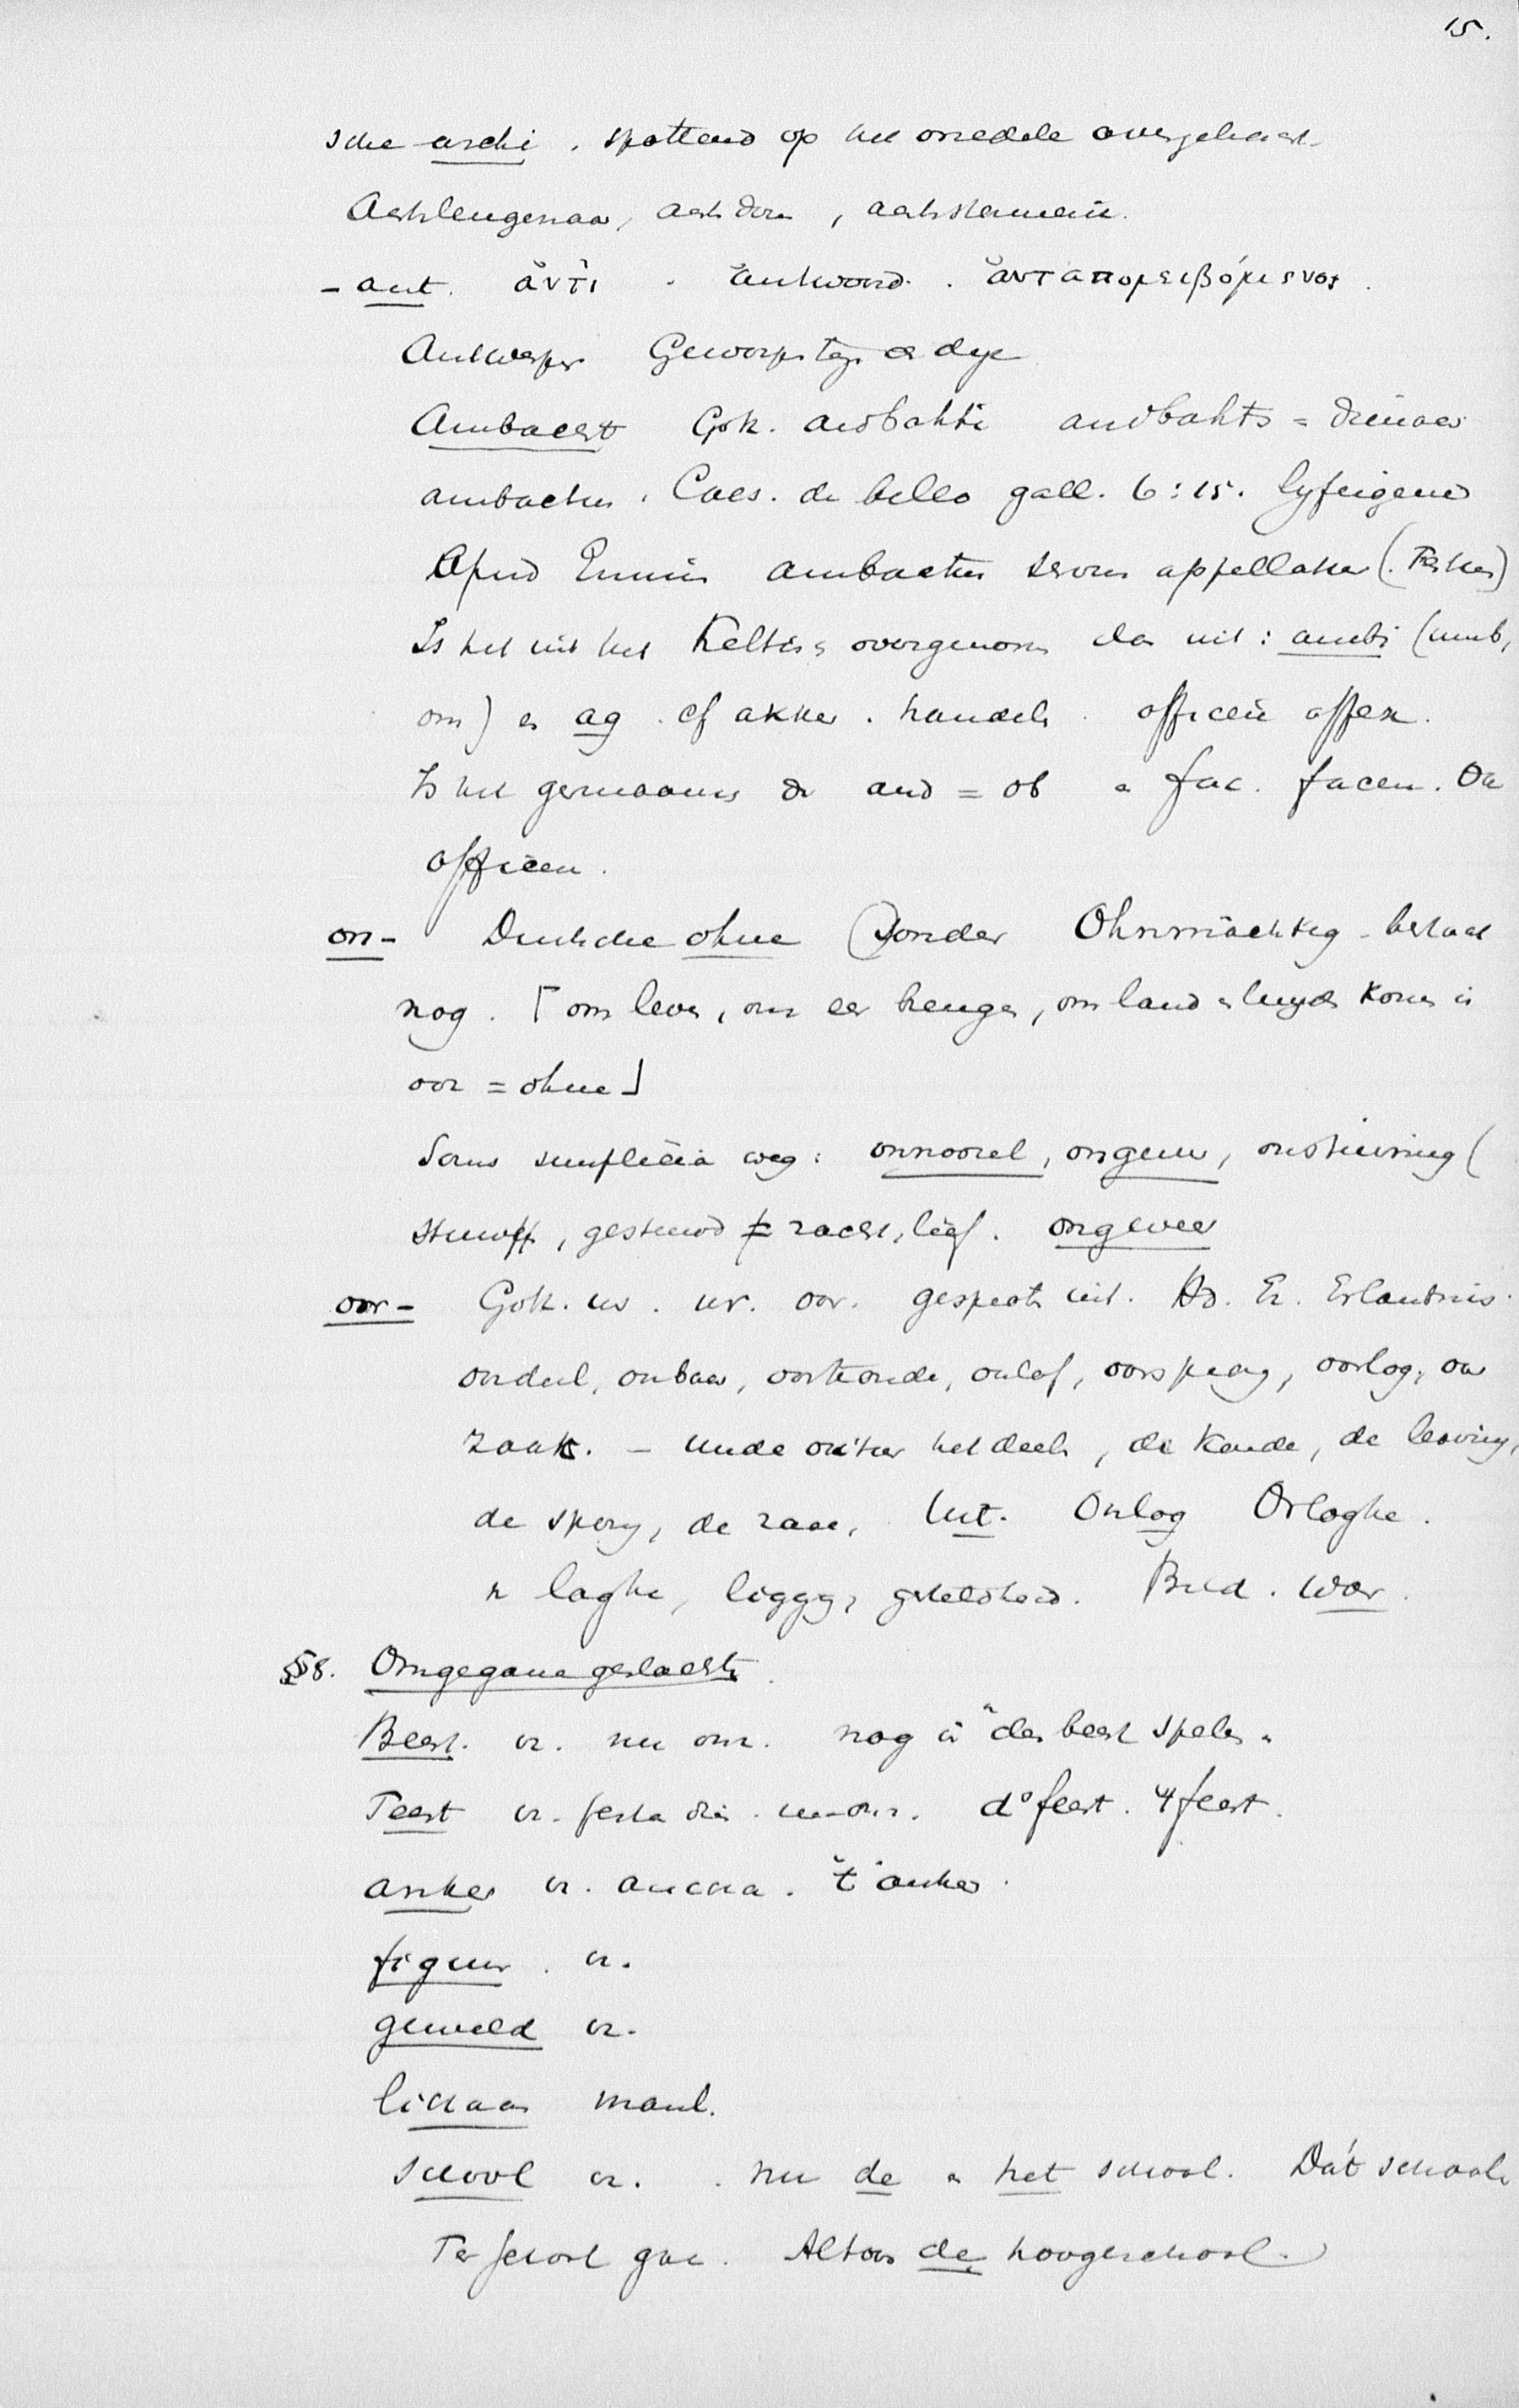 15.
sche archi. spottend op het onedele overgebracht
Aartsleugenaar, aartsdom, aarts
-ant. ἀντί. antwoord. ἀνταπομειβόμενος.
Antwerpen Geworpen tegen de dyk
Ambacht Goth. andbahti andbahts = dienaar
ambactus. Caes. de bello gall. 6:15. lyfeigene
Apud Ennius ambactus servus appellatur (Festus)
Is het uit het Keltisch overgenomen dan uit: ambi (umb,
om) en ag. cf akker. handelen. officium
Is het germaansch dan and = ob en fac. facere. Dan
officium.
on- Duitsche ohne (zonder Ohnmächtig. bestaat
nog. [om leven, om eer brengen, om land en luyden komen is
oor = ohne]
Soms simplicia weg: onnoozel, onguur, onstuimig (
, gestuurd ≠ zacht, lief. ongeveer
oor- Goth. us. ur. oor. gesproten uit. Hd. Er. Erlaubnis.
oordeel, oorbaar, oorkonde, oorlof, oorsprong, oorlog, oor
zaak. – unde oritur het deel, de konde, de looving,
de sprong, de zaak, uit. Orlog Orloghe.
n laghe, ligging, gesteldheid. Bild. wor.
§8. Omgegane geslachten.
Beest. vr. nu onz. nog in "de beest spelen"
Feest vr. festa dies. nu onz. do feest. 't feest.
anker vr. ancora. 't anker.
figuur. vr.
geweld vr.
lichaam manl.
school vr. nu de en het school. Dát school
Ter school gaan. Altoos de hoogeschool.